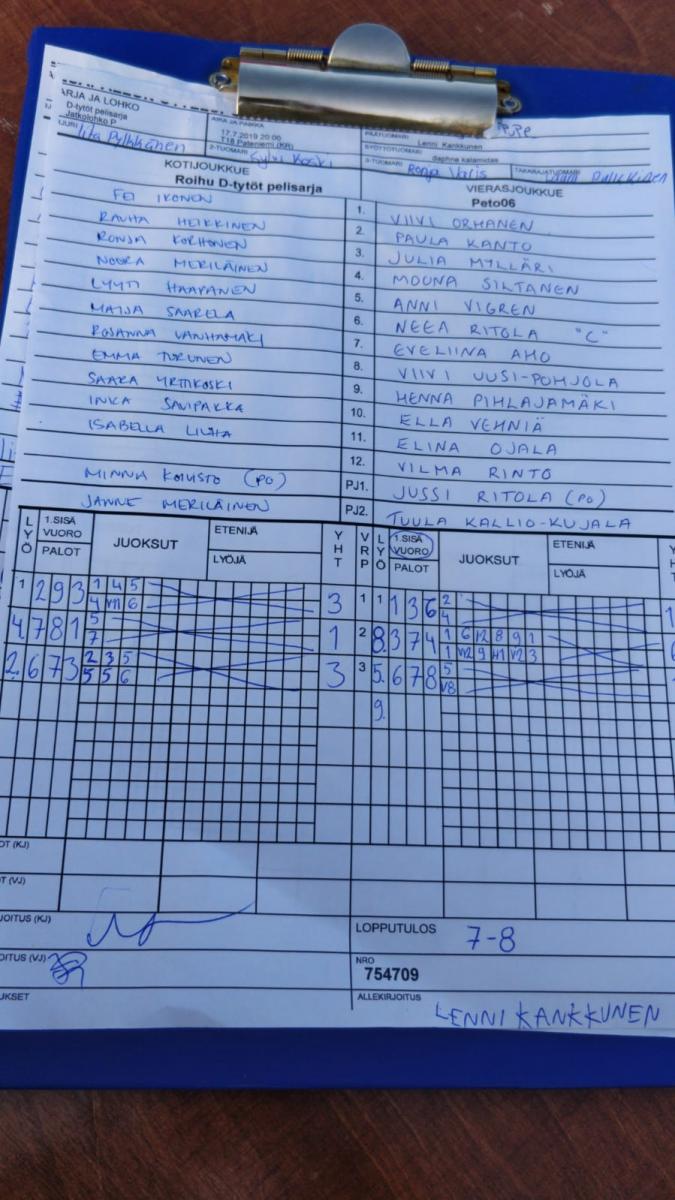 ARJA JA LOHKO
D-tytöt pelisarja
Jatkolohko P
AIKA JA PAIKKA
17.7.2019 20:00
718 Pateniemi (KR)
PÄÄTUOMARI
Lenni Kankkunen
SYÖTTÖTUOMARI
daphne kalamidas
2-TUOMARI Sylvi Koski
3-TUOMARI Ronja Varis
TAKARAJATUOMARI
KOTIJOUKKUE
Roihu D-tytöt pelisarja
VIERASJOUKKUE
Peto06
FEI IKONEN 1. VIIVI ORHANEN
RAUHA HEIKKINEN 2. PAULA KANTO
RONJA KORHONEN 3. JULIA MYLLÄRI
NOORA MERILÄINEN 4. MOONA SILTANEN
LYYTI HAAPANEN 5. ANNI VIGREN
MAIJA SAARELA 6. NEEA RITOLA "C"
ROSANNA VANHAMÄKI 7. EVELIINA AHO
EMMA TURUNEN 8. VIIVI UUSI-POHJOLA
SAARA 9. HENNA PIHLAJAMÄKI
INKA SAVIPAKKA 10. ELLA VEHNIÄ
ISABELLA 11. ELINA OJALA
12. VILMA RINTO
MINNA KOIUSTO (PO) PJ1. JUSSI RITOLA (PO)
JANNE MERILÄINEN PJ2. TUULA KALLIO-KUJALA
LYÖ 1.SISÄ VUORO PALOT JUOKSUT ETENIJÄ LYÖJÄ YHT VRP LYÖ 1.SISÄ VUORO PALOT JUOKSUT ETENIJÄ LYÖJÄ
1 2 9 3 1 4 5 3 1 1 1 3 6 2
4 VII 6 4
4. 7 8 1 5 1 2 8. 3 7 4 1 6 12 8 9 1
7 1 V12 9 VII V12 3
2. 6 7 3 2 3 5 3 3 5. 6 7 8 5
5 5 6 V8
9.
OT (KJ)
OT (VJ)
JOITUS (KJ)
LOPPUTULOS 7-8
OITUS (VJ)
NRO
754709
UKSET
ALLEKIRJOITUS
LENNI KANKKUNEN